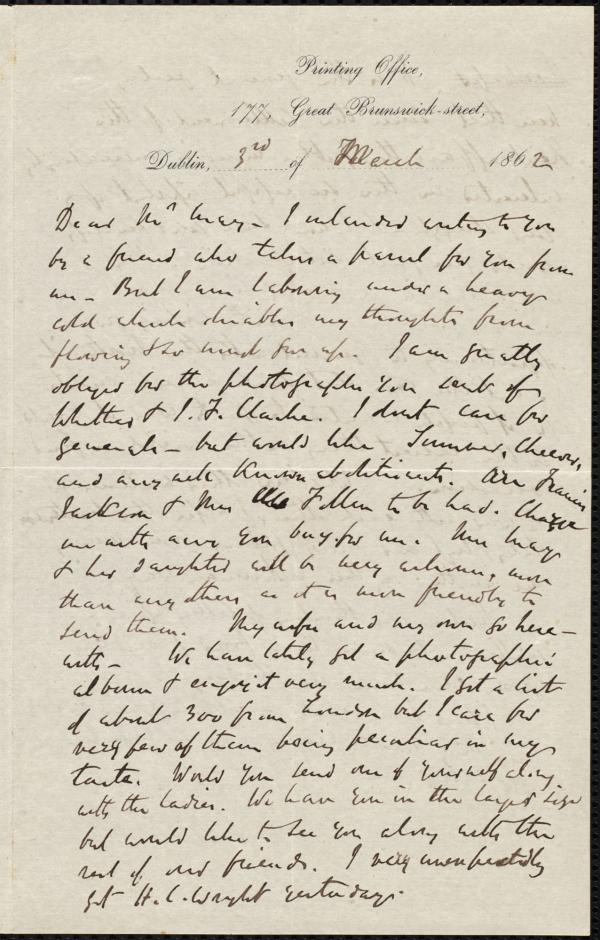 Printing Office,
177, Great Brunswick-street,
Dublin, 3rd of March 1862
Dear Mr May - I intended writing to you
by a friend who takes a parcel for you from
me - But I am labouring under a heavy
cold which disables my thoughts from
flowing & so must give up. I am greatly
obliged for the photographs you sent of
Whittier & J. F. Clarke. I dont care for
generals - but would like Sumner, Cheever,
and any well known abolitionists. Are Francis
Jackson & Mrs Follen to be had. Charge
me with any you buy for me. Mrs May
& her daughter will be very welcome, more
than any others as it is more friendly to
send them. My wife and my own go here-
with - We have lately got a photographic
album & enjoy it very much. I got a list
of about 300 from London but I care for
very few of them being peculiar in my
taste. Would you send one of yourself along
with the ladies. We have you in the large size
but would like to see you along with the
rest of our friends. I very unexpectedly
got H. C. Wright yesterday.